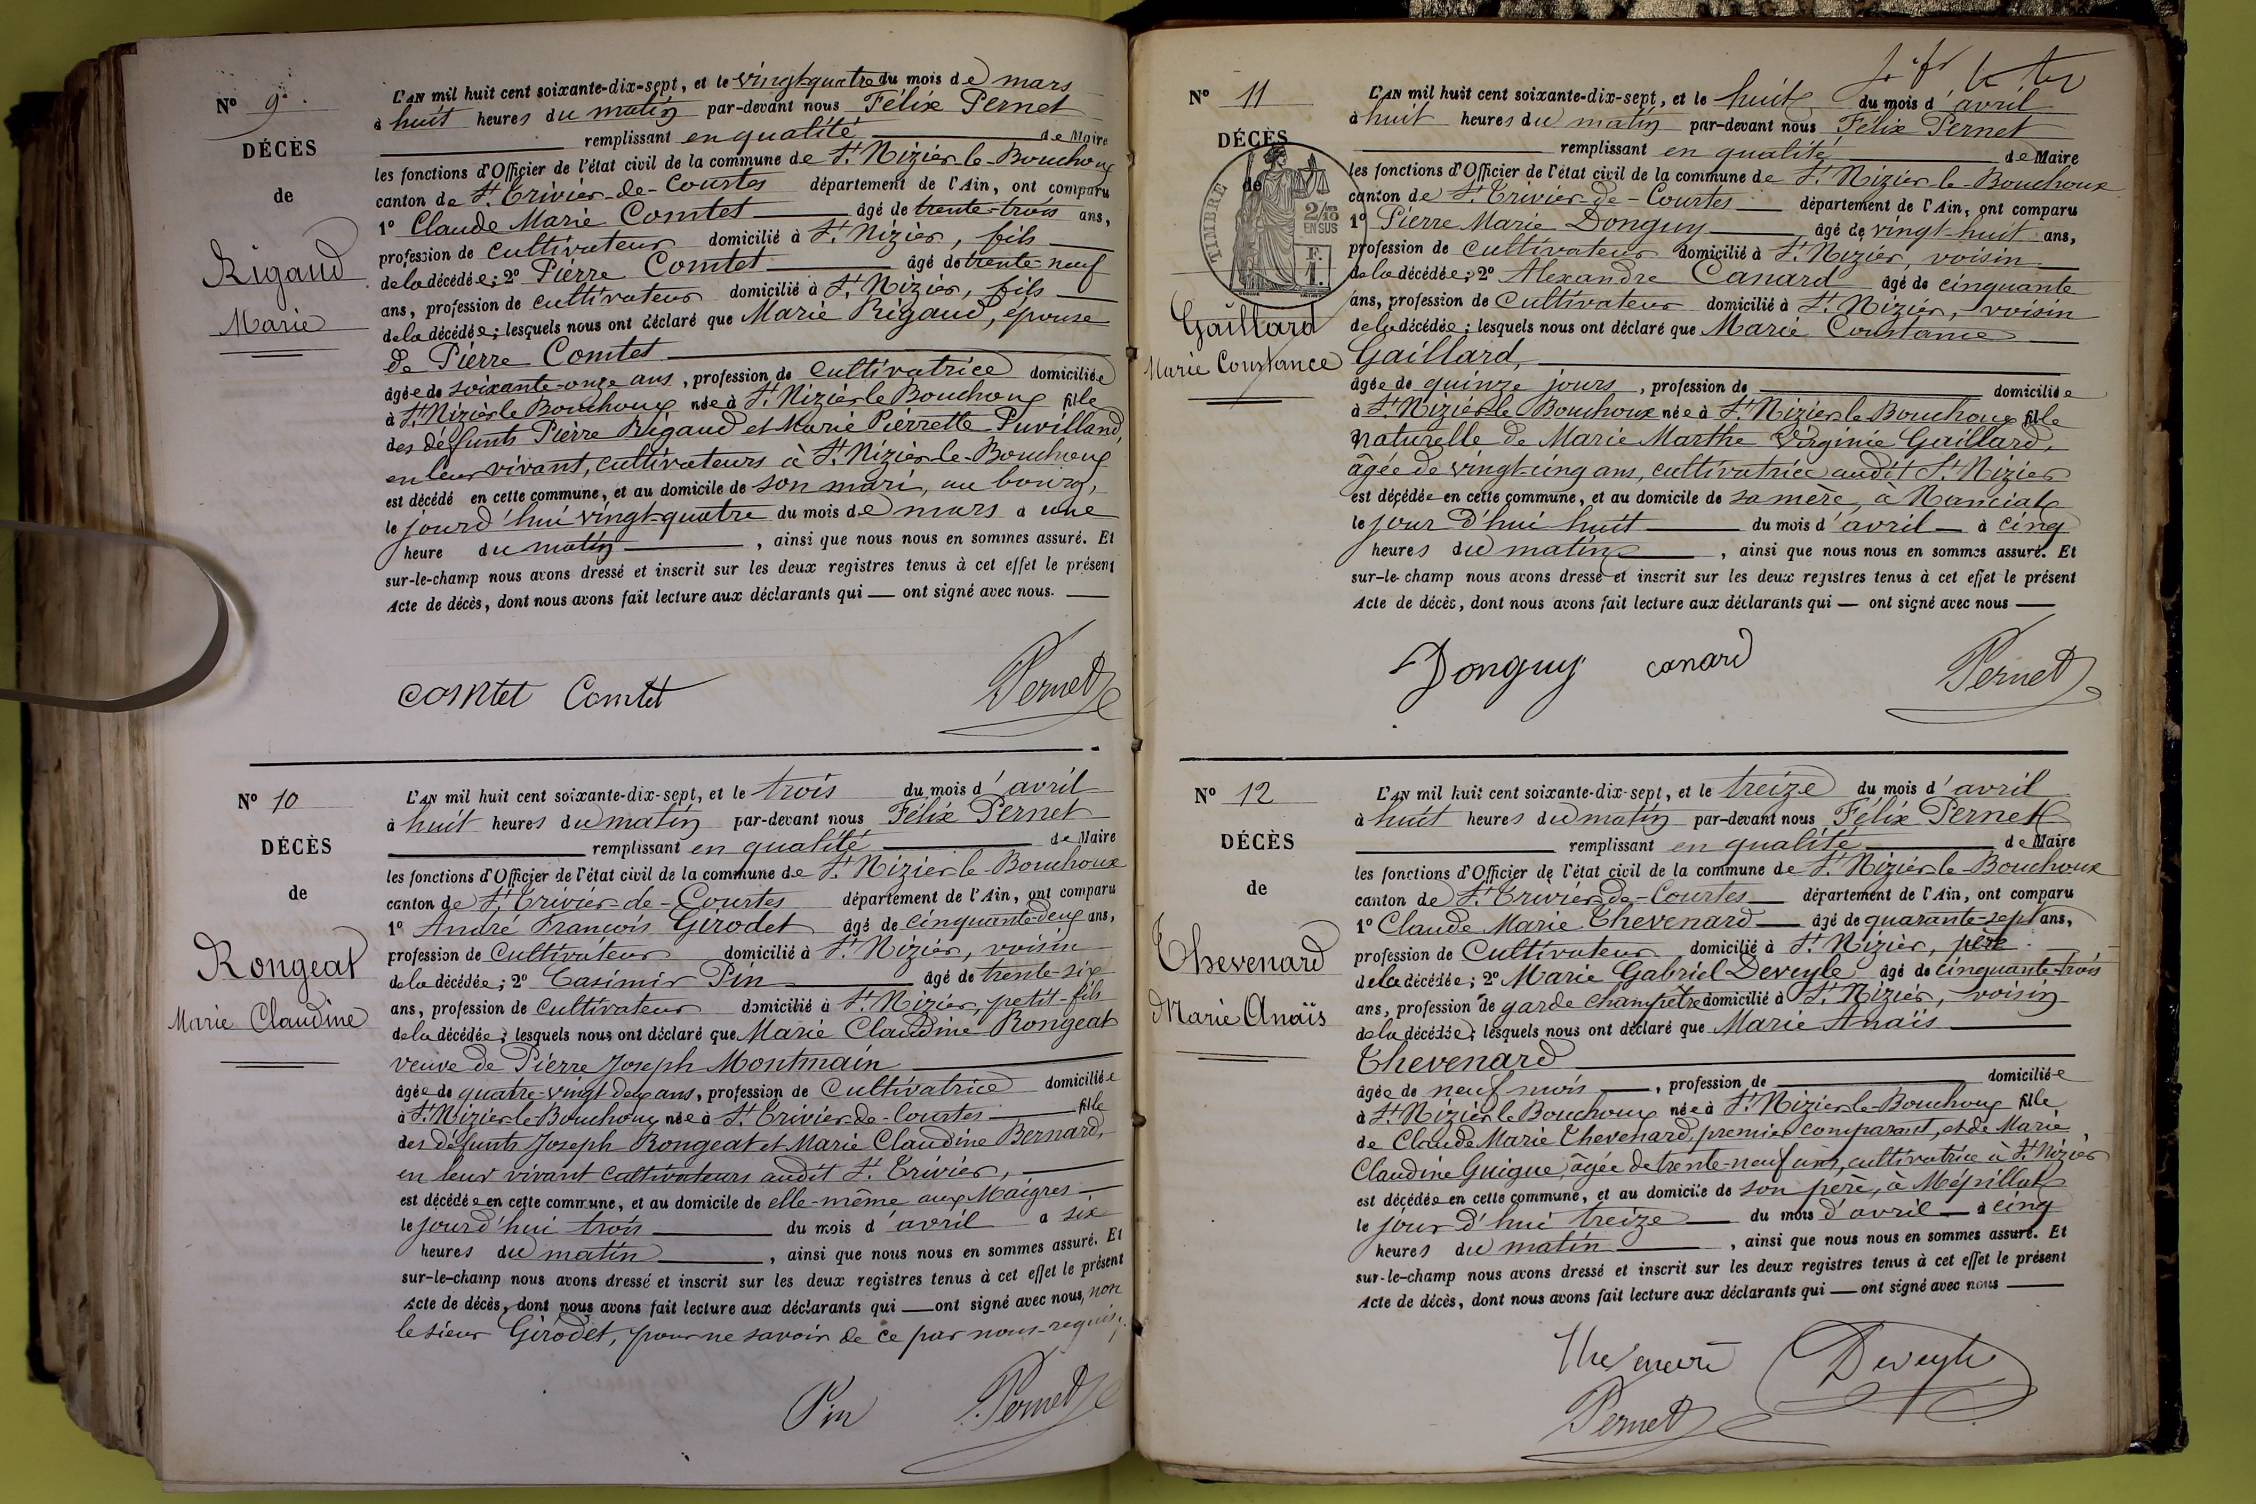 N° 9
DÉCÈS
de
Rigaud
Marie
L'AN mil huit cent soixante-dix-sept, et le vingt-quatre du mois de mars
à huit heures du matin par-devant nous Félix Pernet
remplissant en qualité de Maire
les fonctions d'Officier de l'état civil de la commune de St Nizier-le-Bouchoux
canton de St Trivier-de-Courtes département de l'Ain, ont comparu
1° Claude Marie Comtet âgé de trente-trois ans,
profession de cultivateur domicilié à St Nizier, fils
de la décédée; 2° Pierre Comtet âgé de trente-neuf
ans, profession de cultivateur domicilié à St Nizier, fils
de la décédée; lesquels nous ont déclaré que Marie Rigaud, épouse
de Pierre Comtet
âgée de soixante-onze ans, profession de cultivatrice domiciliée
à St Nizier le Bouchoux née à St Nizier le Bouchoux fille
des défunts Pierre Rigaud et Marie Pierrette Puvilland,
en leur vivant, cultivateurs à St Nizier-le-Bouchoux
est décédé en cette commune, et au domicile de son mari, au bourg,
le jourd'hui vingt-quatre du mois de mars à une
heure du matin, ainsi que nous nous en sommes assuré. Et
sur-le-champ nous avons dressé et inscrit sur les deux registres tenus à cet effet le présent
Acte de décès, dont nous avons fait lecture aux déclarants qui — ont signé avec nous.
Comtet Comtet Pernet
N° 10
DÉCÈS
de
Rongeat
Marie Claudine
L'AN mil huit cent soixante-dix-sept, et le trois du mois d'avril
à huit heures du matin par-devant nous Félix Pernet
remplissant en qualité de Maire
les fonctions d'Officier de l'état civil de la commune de St Nizier-le-Bouchoux
canton de St Trivier-de-Courtes département de l'Ain, ont comparu
1° André François Girodet âgé de cinquante-deux ans,
profession de cultivateur domicilié à St Nizier, voisin
de la décédée; 2° Casimir Pin âgé de trente-six
ans, profession de cultivateur domicilié à St Nizier, petit-fils
de la décédée; lesquels nous ont déclaré que Marie Claudine Rongeat
veuve de Pierre Joseph Montmain
âgée de quatre-vingt-deux ans, profession de cultivatrice domiciliée
à St Nizier le Bouchoux née à St Trivier-de-Courtes fille
des défunts Joseph Rongeat et Marie Claudine Bernard,
en leur vivant cultivateurs audit St Trivier,
est décédée en cette commune, et au domicile de elle-même aux Maigres
le jourd'hui trois du mois d'avril à six
heures du matin, ainsi que nous nous en sommes assuré. Et
sur-le-champ nous avons dressé et inscrit sur les deux registres tenus à cet effet le présent
Acte de décès, dont nous avons fait lecture aux déclarants qui — ont signé avec nous, non
le sieur Girodet, pour ne savoir de ce par nous requis.
Pin Pernet
N° 11
DÉCÈS
de
TIMBRE
2/10
EN SUS
F.
1.
Gaillard
Marie Constance
L'AN mil huit cent soixante-dix-sept, et le huit du mois d'avril
à huit heures du matin par-devant nous Félix Pernet
remplissant en qualité de Maire
les fonctions d'Officier de l'état civil de la commune de St Nizier-le-Bouchoux
canton de St Trivier-de-Courtes département de l'Ain, ont comparu
1° Pierre Marie Donguy âgé de vingt-huit ans,
profession de cultivateur domicilié à St Nizier, voisin
de la décédée; 2° Alexandre Canard âgé de cinquante
ans, profession de cultivateur domicilié à St Nizier, voisin
de la décédée; lesquels nous ont déclaré que Marie Constance
Gaillard,
âgée de quinze jours, profession de domiciliée
à St Nizier-le-Bouchoux née à St Nizier le Bouchoux fille
naturelle de Marie Marthe Virginie Gaillard,
âgée de vingt-cinq ans, cultivatrice audit St Nizier
est décédée en cette commune, et au domicile de sa mère, à Manciat
le jour d'hui huit du mois d'avril à cinq
heures du matin, ainsi que nous nous en sommes assuré. Et
sur-le-champ nous avons dressé et inscrit sur les deux registres tenus à cet effet le présent
Acte de décès, dont nous avons fait lecture aux déclarants qui — ont signé avec nous
Donguy Canard Pernet
N° 12
DÉCÈS
de
Thevenard
Marie Anaïs
L'AN mil huit cent soixante-dix-sept, et le treize du mois d'avril
à huit heures du matin par-devant nous Félix Pernet
remplissant en qualité de Maire
les fonctions d'Officier de l'état civil de la commune de St Nizier-le-Bouchoux
canton de St Trivier-de-Courtes département de l'Ain, ont comparu
1° Claude Marie Thevenard âgé de quarante-sept ans,
profession de cultivateur domicilié à St Nizier, père
de la décédée; 2° Marie Gabriel Deveyle âgé de cinquante-trois
ans, profession de garde champêtre domicilié à St Nizier, voisin
de la décédée; lesquels nous ont déclaré que Marie Anaïs
Thevenard
âgée de neuf mois, profession de domiciliée
à St Nizier le Bouchoux née à St Nizier-le-Bouchoux fille
de Claude Marie Thevenard, premier comparant, et de Marie
Claudine Guigue, âgée de trente-neuf ans, cultivatrice à St Nizier
est décédée en cette commune, et au domicile de son père, à Mépillat
le jour d'hui treize du mois d'avril à cinq
heures du matin, ainsi que nous nous en sommes assuré. Et
sur-le-champ nous avons dressé et inscrit sur les deux registres tenus à cet effet le présent
Acte de décès, dont nous avons fait lecture aux déclarants qui — ont signé avec nous
Thevenard Deveyle
Pernet